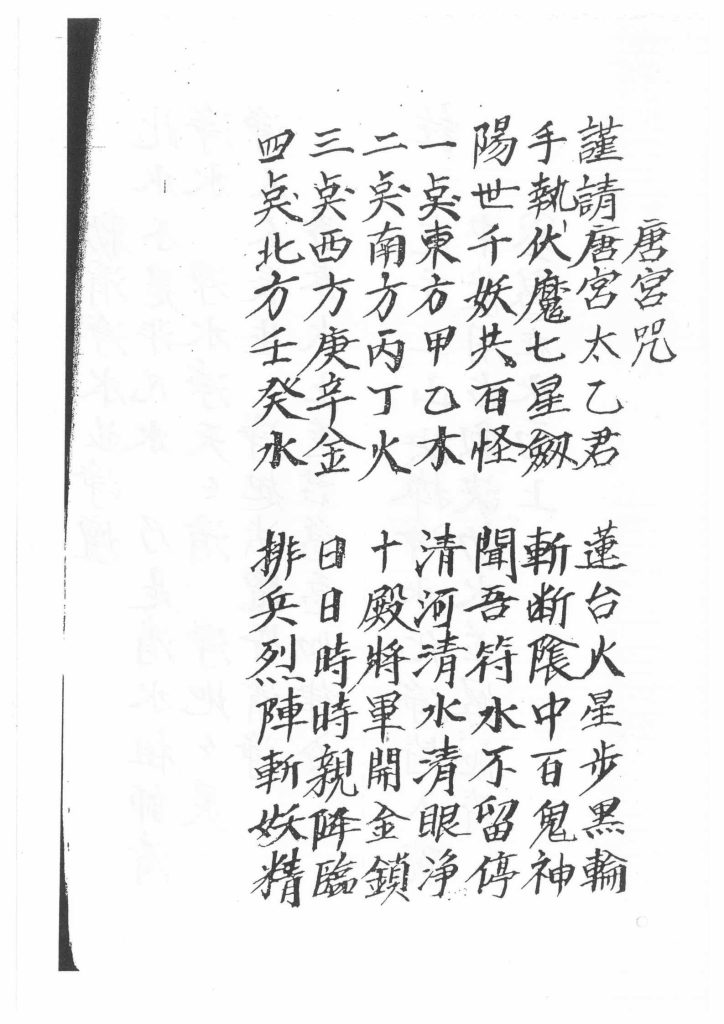 唐宮咒
謹請唐宮太乙君　蓮台火星步黑輪
手執伏魔七星劔　斬断陰中百鬼神
陽世千妖共百怪　聞吾符水不留停
一奌東方甲乙木　清河清水清眼淨
二奌南方丙丁火　十殿將軍開金鎖
三奌西方庚辛金　日日時時親降臨
四奌北方壬癸水　排兵烈陣斬妖精